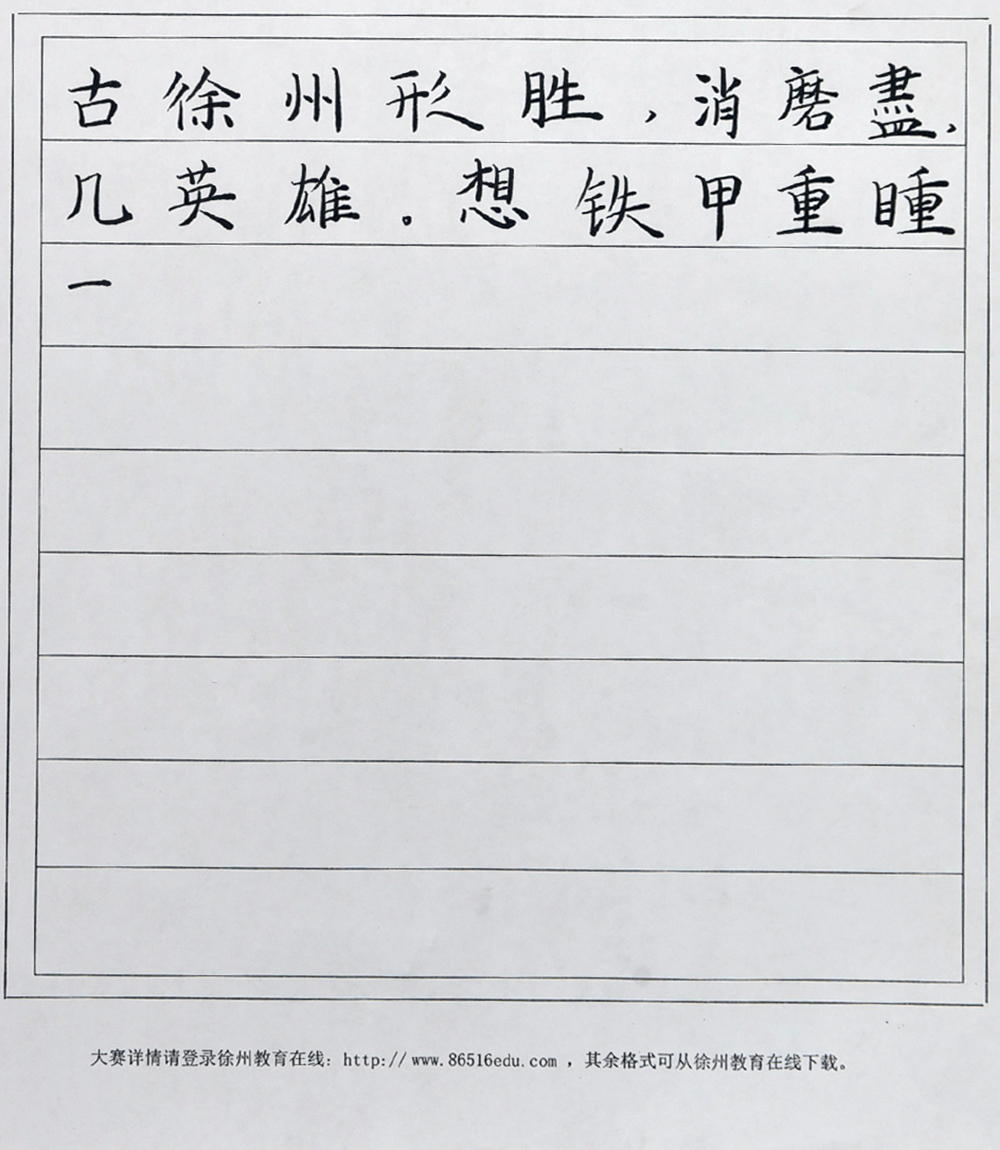 古徐州形胜，消磨盡，
几英雄。想铁甲重瞳
一
大赛详情请登录徐州教育在线：http://www.86516edu.com ，其余格式可从徐州教育在线下载。